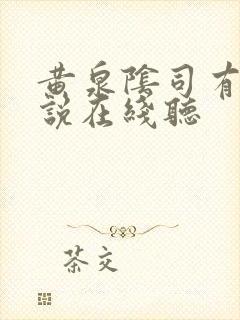 黄泉陰司有
說在綫聽
茶文